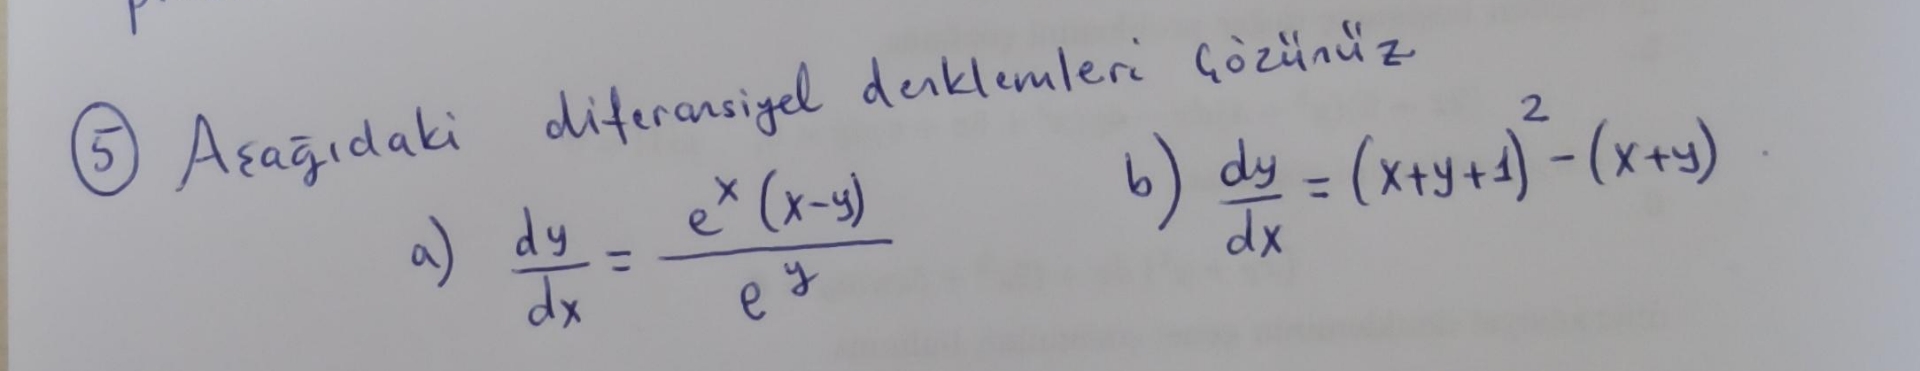 5 Aşağıdaki diferansiyel denklemleri çözünüz
a) dy/dx = e^x (x-y) / e^y b) dy/dx = (x+y+1)^2 - (x+y)